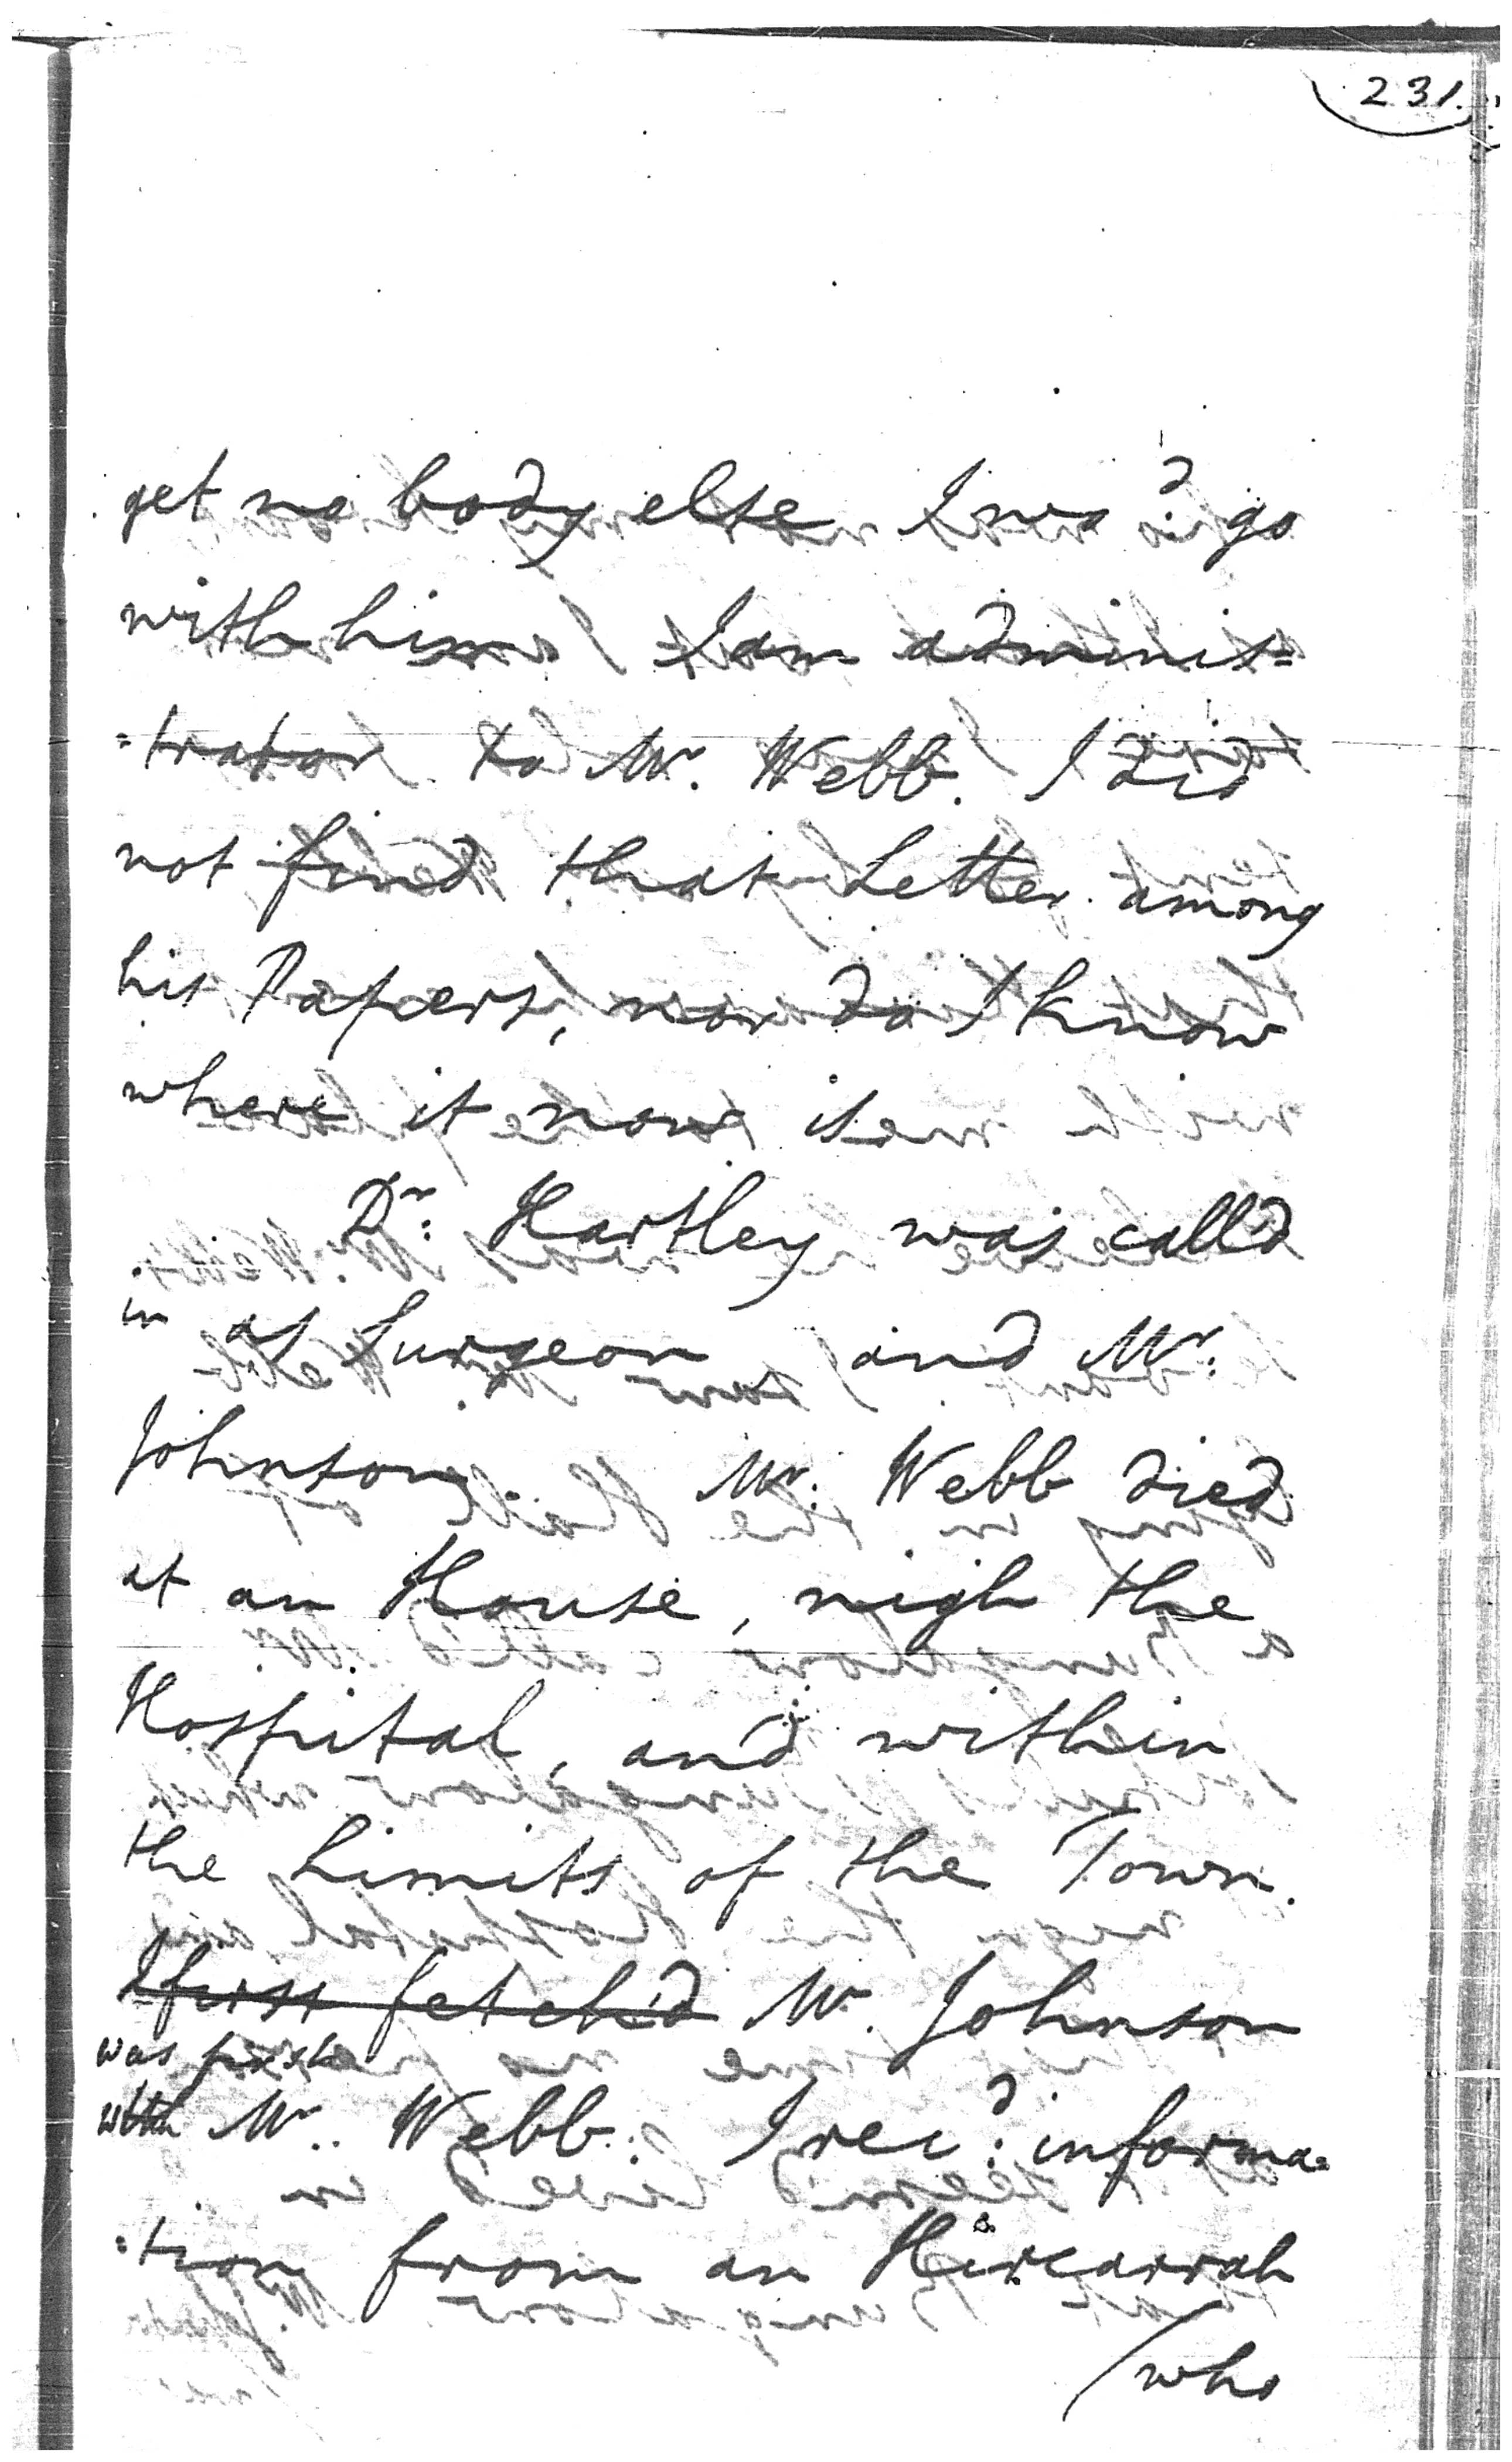 231.
get no body else I wo:ᵈ go
with him / I am adminis=
=trator to Mr. Webb. I did
not find that Letter among
his Papers, nor do I know
where it now is.
Dr: Hartley was call'd
in as Surgeon and Mr:
Johnson. Mr: Webb died
at an House, nigh the
Hospital, and within
the Limits of the Town.
I first fetch'd Mr. Johnson
was first
with Mr.. Webb: I rec:ᵈ informa=
=tion from an Hircarrah
/who